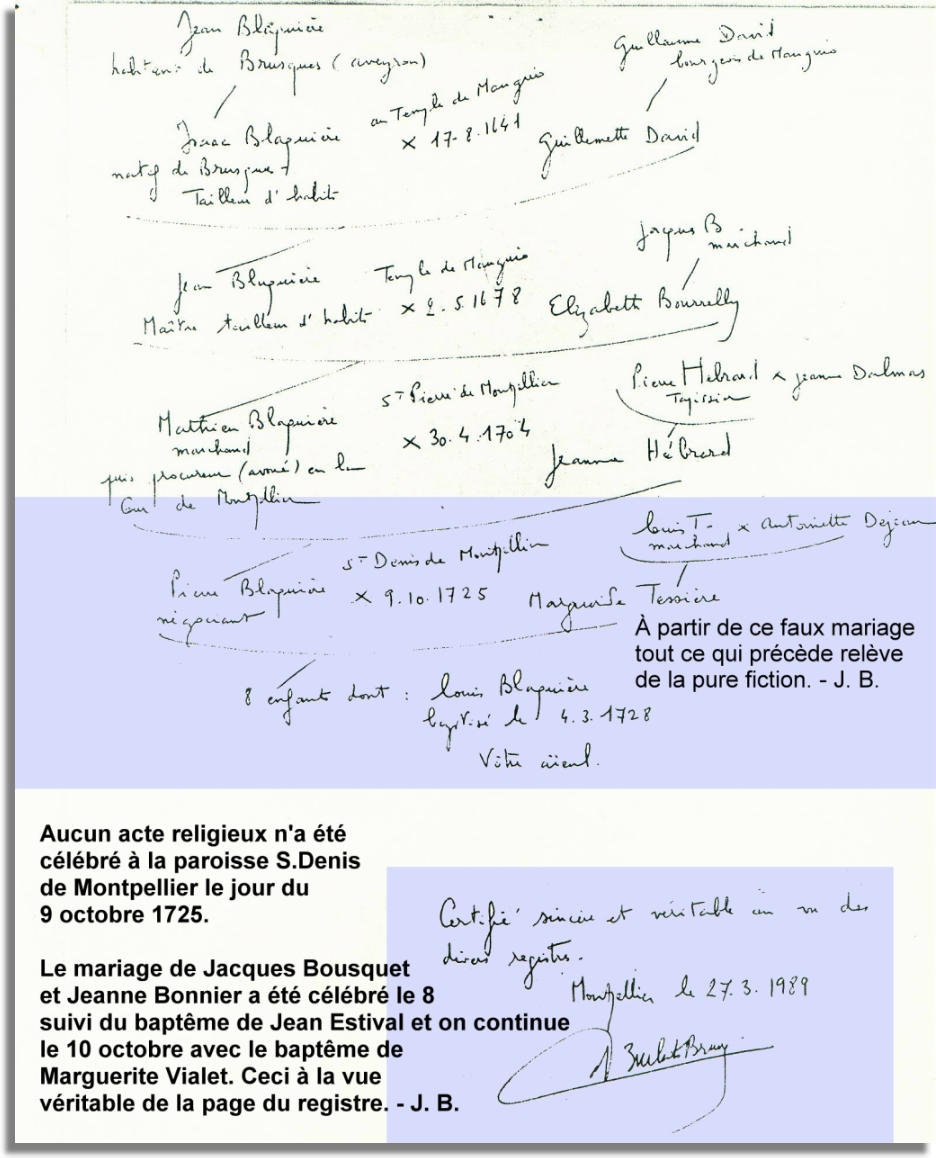 Jean Blaquière
habitant de Brusques (aveyron)
Guillaume David
bourgeois de Mauguio
Isaac Blaquière
natif de Brusques -
Tailleur d'habits
au Temple de Mauguio
x 17-8.1641
Guillemette David
Jean Blaquière
Maître tailleur d'habits
Temple de Mauguio
x 2.5.1678
Jacques B
marchand
Elizabeth Bourrelly
Mathieu Blaquière
marchand
puis procureur (avoué) en la
Cour de Montpellier
St Pierre de Montpellier
x 30.4.1704
Pierre Hébrard x Jeanne Dalmas
Tapissier
Jeanne Hébrard
Pierre Blaquière
négociant
St Denis de Montpellier
x 9.10.1725
Louis T- x Antoinette Dejean
marchand
Marguerite Tessière
À partir de ce faux mariage
tout ce qui précède relève
de la pure fiction. - J. B.
8 enfants dont : Louis Blaquière
baptisé le 4.3.1728
Votre aïeul.
Aucun acte religieux n'a été
célébré à la paroisse S.Denis
de Montpellier le jour du
9 octobre 1725.
Le mariage de Jacques Bousquet
et Jeanne Bonnier a été célébré le 8
suivi du baptême de Jean Estival et on continue
le 10 octobre avec le baptême de
Marguerite Vialet. Ceci à la vue
véritable de la page du registre. - J. B.
Certifié sincère et véritable au vu des
divers registres.
Montpellier le 27.3.1989